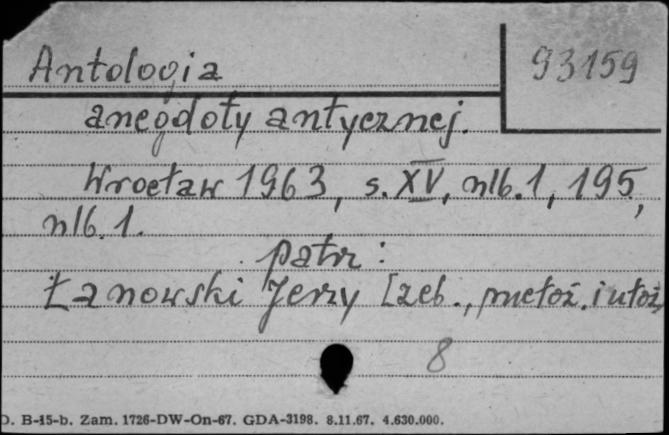 Antologia
93159
anegdoty antycznej.
Wrocław 1963, s. XV, nlb. 1, 195,
nlb. 1.
patrz:
Łanowski Jerzy [zeb., przełoż. i ułoż.
8
D. B-15-b. Zam. 1726-DW-On-67. GDA-3198. 8.11.67. 4.630.000.